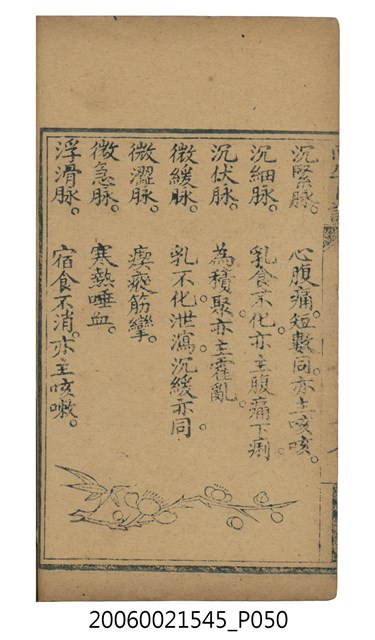 沉緊脉。 心腹痛。短數同。亦主咳咳。
沉細脉。 乳食不化。亦主腹痛下痢。
沉伏脉。 為積聚。亦主霍亂。
微緩脉。 乳不化。泄瀉。沉緩亦同。
微澀脉。 瘈瘲筋攣。
微急脉。 寒熱唾血。
浮滑脉。 宿食不消。亦主咳嗽。
20060021545_P050